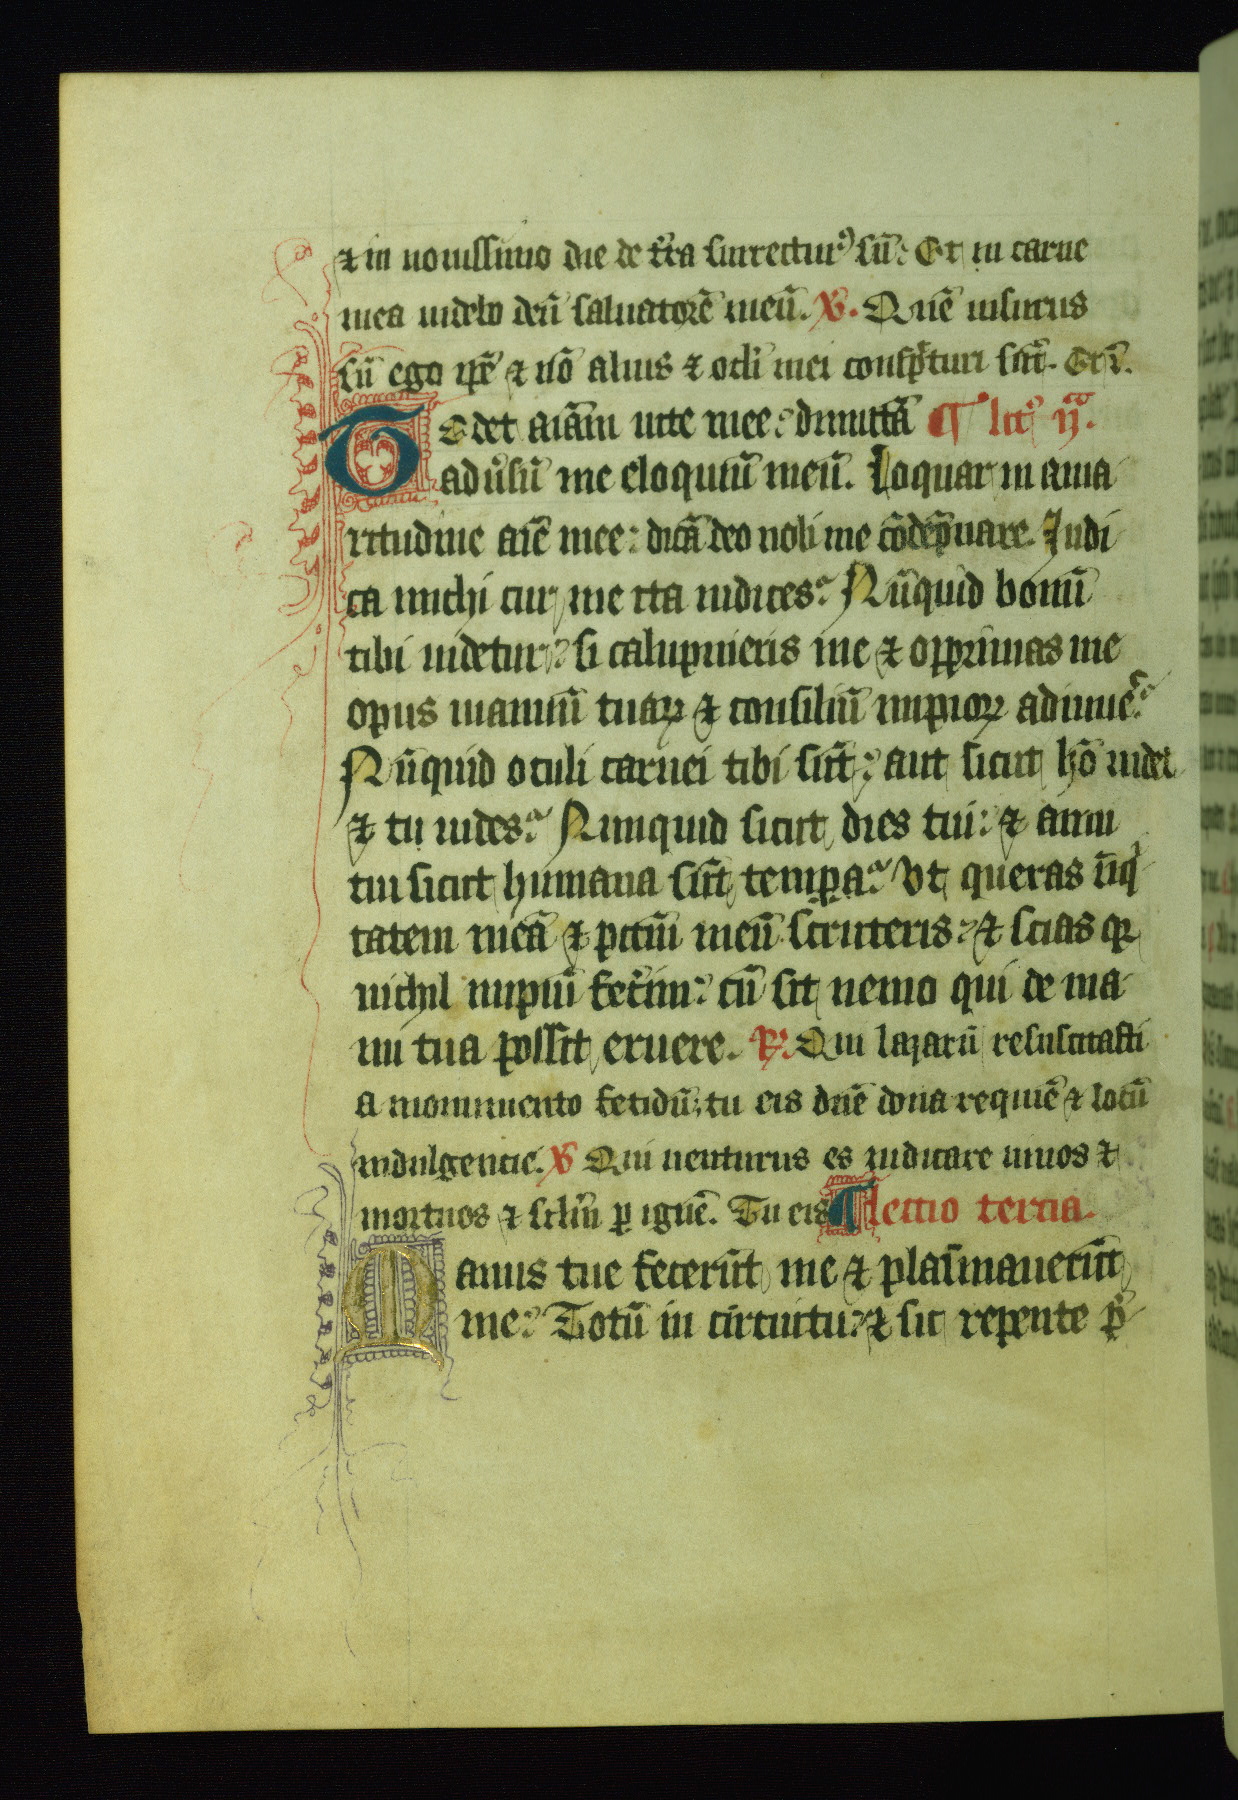 ⁊ in nouissimo die de t̄ra surrectur⁹ sū: Et in carne
mea uidebo deū saluatorē meū. ℣. Quē uisurus
sū ego ip̄e ⁊ nō alius ⁊ oc̄li mei conspc̄turi sūt. Et ī.
Tedet aīam uite mee: dimittā ¶ lcō ij̄ᵃ.
adūsū me eloquiū meū. Loquar in ama
ritudine aīe mee: dicā deo noli me cōdēpnare. Indi
ca michi cur me ita iudices? Nūquid bonū
tibi uidetur? si calupnieris me ⁊ opprimas me
opus manuū tuaꝝ ⁊ consiliū impioꝝ adiuue?
Nūquid oculi carnei tibi sūt? aut sicut hō uidet
⁊ tu uides? Nunquid sicut dies tui: ⁊ anni
tui sicut humana sūt tempora? Vt queras iniq̄
tatem meā ⁊ pctm̄ meū scruteris? ⁊ scias qꝛ
nichil impiū fecīm: cū sit nemo qui de ma
nu tua possit eruere. ℟. Qui lazarū resuscitasti
a monumento fetidū: tu eis dn̄e dona requiē ⁊ locū
indulgencie. ℣ Qui uenturus es iudicare uiuos ⁊
mortuos ⁊ sclm̄ ꝑ ignē. Tu eis ¶ lectio tercia.
Manus tue fecerūt me ⁊ plasmauerūt
me? Totū in circuitu? ⁊ sic repente p̄